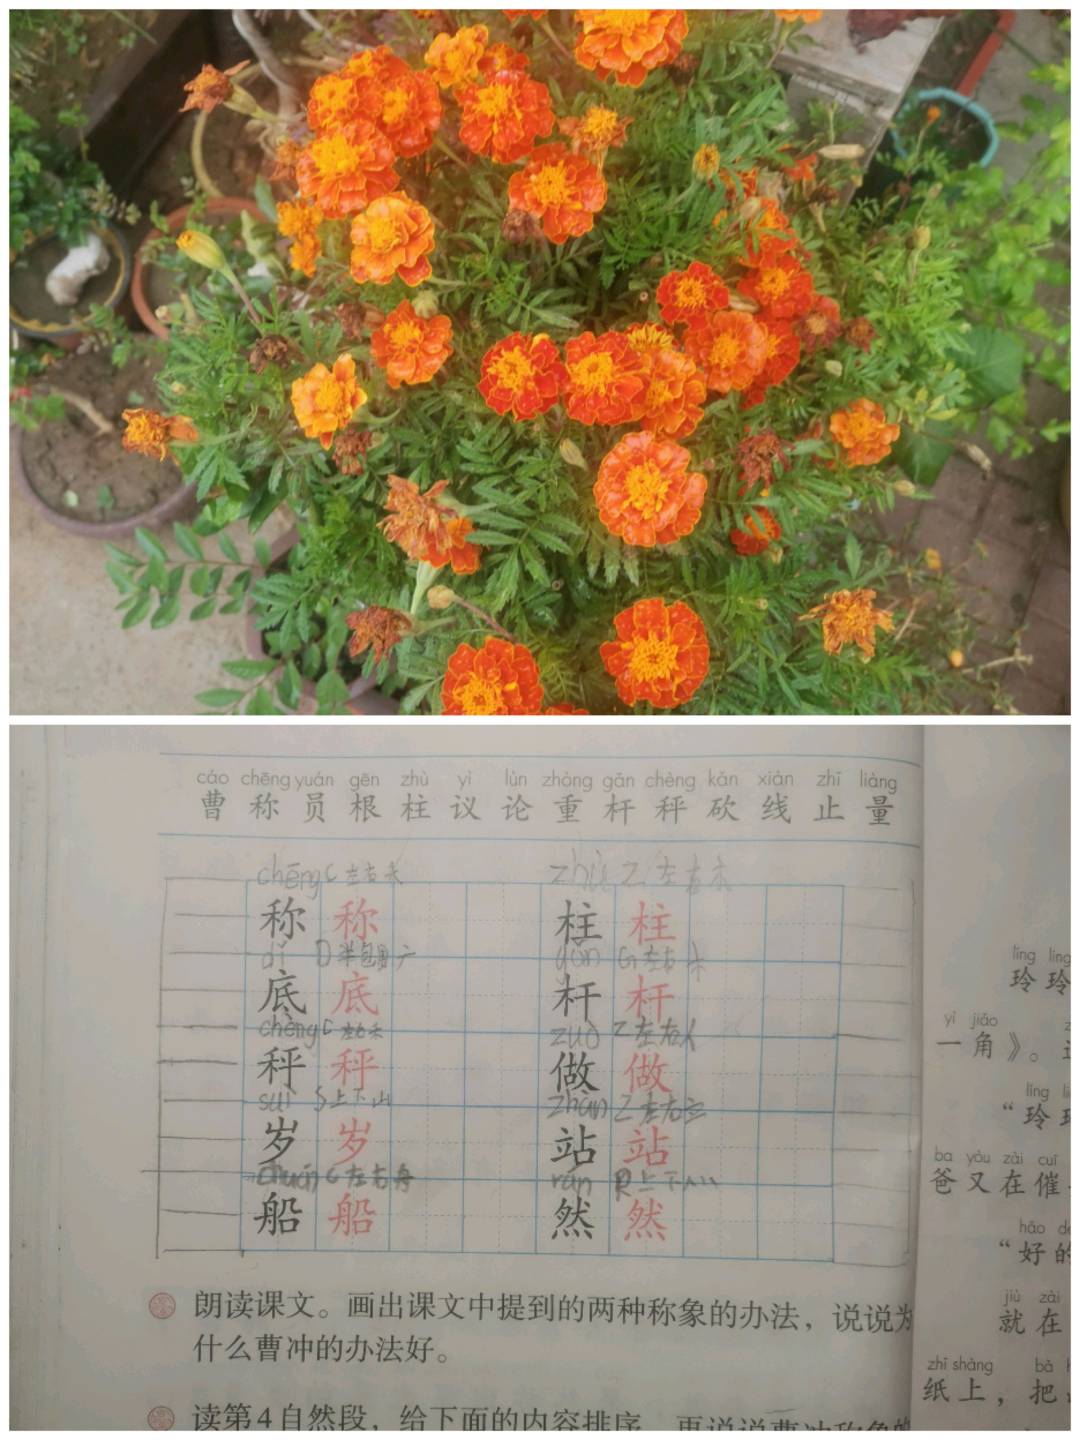 cáo chēng yuán gēn zhù yì lùn zhòng gǎn chèng kǎn xiàn zhǐ liàng
曹 称 员 根 柱 议 论 重 杆 秤 砍 线 止 量
chēng C 左右 禾 zhù Z 左右 木
称 称 柱 柱
dǐ D 半包围 广 gǎn G 左右 木
底 底 杆 杆
chèng C 左右 禾 zuò Z 左右 亻
秤 秤 做 做
suì S 上下 山 zhàn Z 左右 立
岁 岁 站 站
chuán C 左右 舟 rán R 上下 灬
船 船 然 然
朗读课文。画出课文中提到的两种称象的办法，说说为
什么曹冲的办法好。
读第4自然段，给下面的内容排序，再说说曹冲称象的
líng líng
玲 玲
yì jiǎo
一 角 》。
líng
“玲 玲
ba yòu zài cuī
爸 又 在 催
hǎo de
“好 的
jiù zài
就 在
zhǐ shàng bǎ
纸 上 ， 把